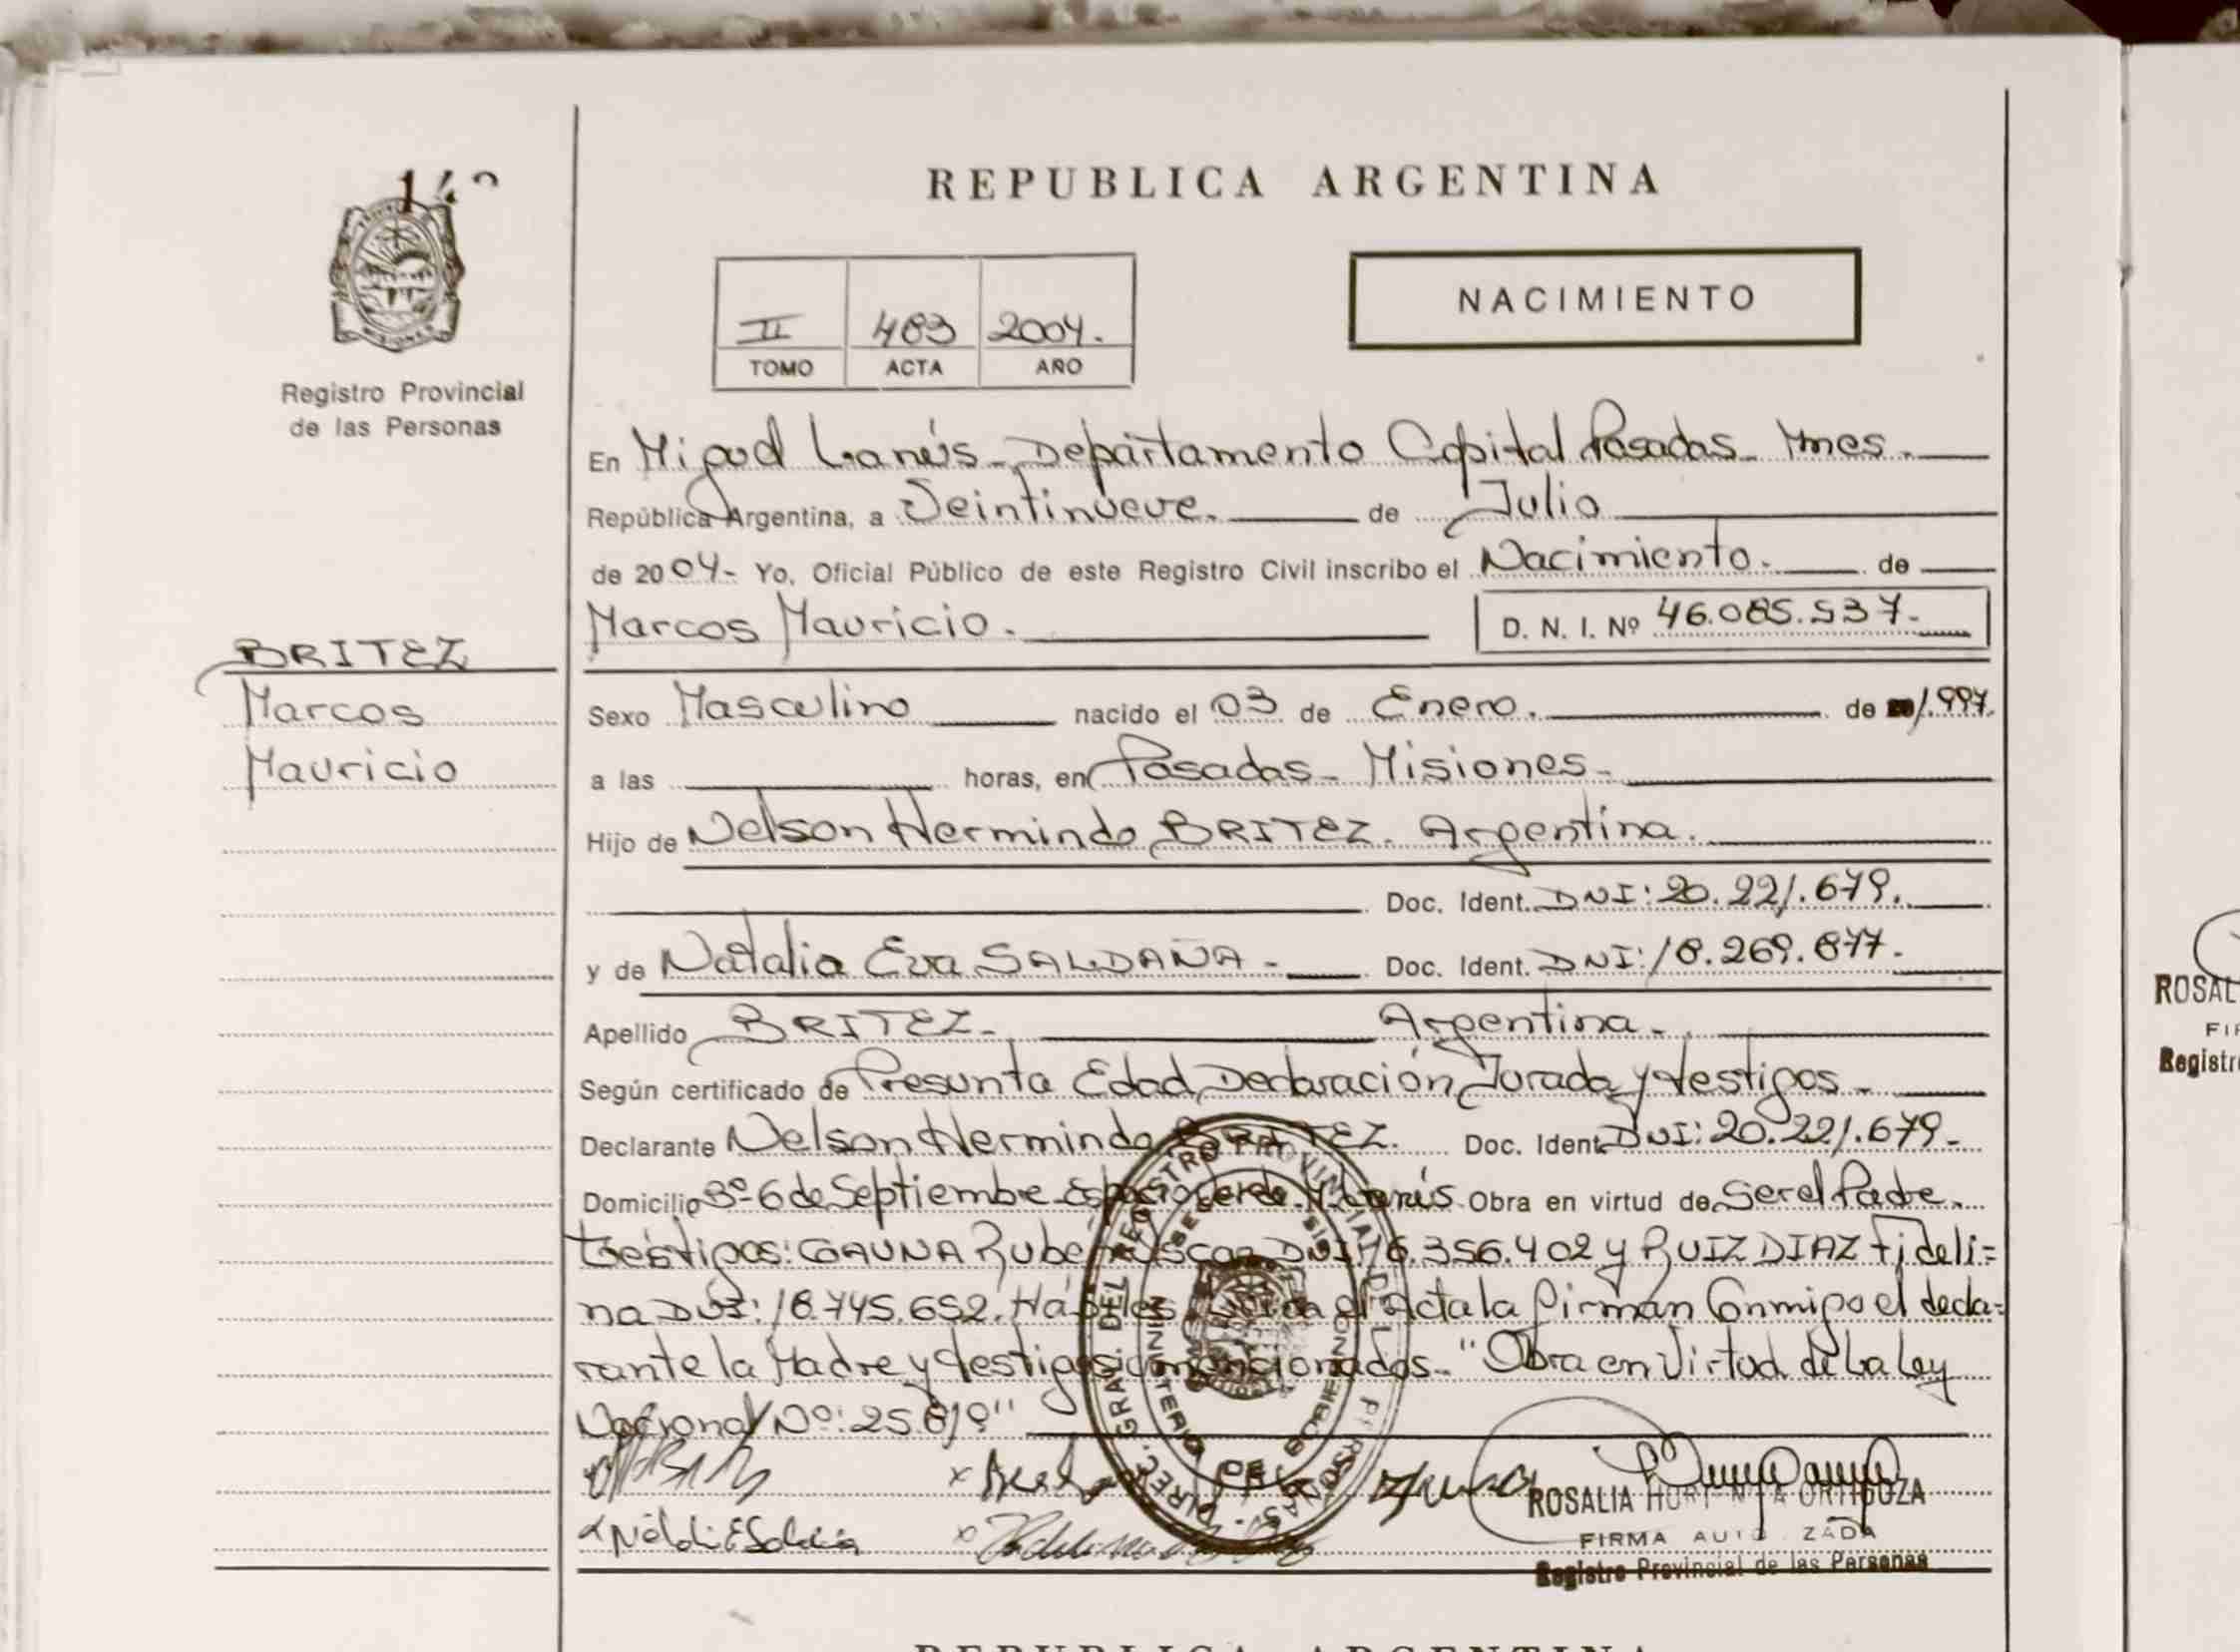 REPUBLICA ARGENTINA
NACIMIENTO
II 483 2004.
TOMO ACTA AÑO
Registro Provincial
de las Personas
En Miguel Lanús - Departamento Capital Posadas - Mnes.
República Argentina, a Veintinueve. de Julio
de 2004- Yo, Oficial Público de este Registro Civil inscribo el Nacimiento. de
Marcos Mauricio. D. N. I. Nº 46.085.537.-
BRITEZ
Marcos
Mauricio
Sexo Masculino nacido el 03 de Enero. de 1.997.
a las horas, en Posadas - Misiones -
Hijo de Nelson Hermindo BRITEZ. Argentina.
Doc. Ident. DNI: 20.221.679.
y de Natalia Eva SALDAÑA - Doc. Ident. DNI: 18.269.877.-
Apellido BRITEZ - Argentina -
Según certificado de Presunta Edad, Declaración Jurada y testigos -
Declarante Nelson Hermindo BRITEZ. Doc. Ident. DNI: 20.221.679 -
Domicilio 3º- 6 de Septiembre - Espacio Verde - M. Lanús. Obra en virtud de Ser el Padre.
testigos: GAUNA Rubén Oscar DNI: 16.356.402 y RUIZ DIAZ Fideli=
na DNI: 18.745.652. Hábiles el Acta la firman Conmigo el decla=
rante la Madre y testigos mencionados - "Obra en Virtud de La Ley
Nacional Nº: 25.819"
DIREC. GRAL. DEL REGISTRO PROVINCIAL DE LAS PERSONAS
MINISTERIO DE GOBIERNO
ROSALIA HORTENCIA ORTIGOZA
FIRMA AUTORIZADA
Registro Provincial de las Personas
ROSAL
FIR
Registr
REPUBLICA ARGENTINA